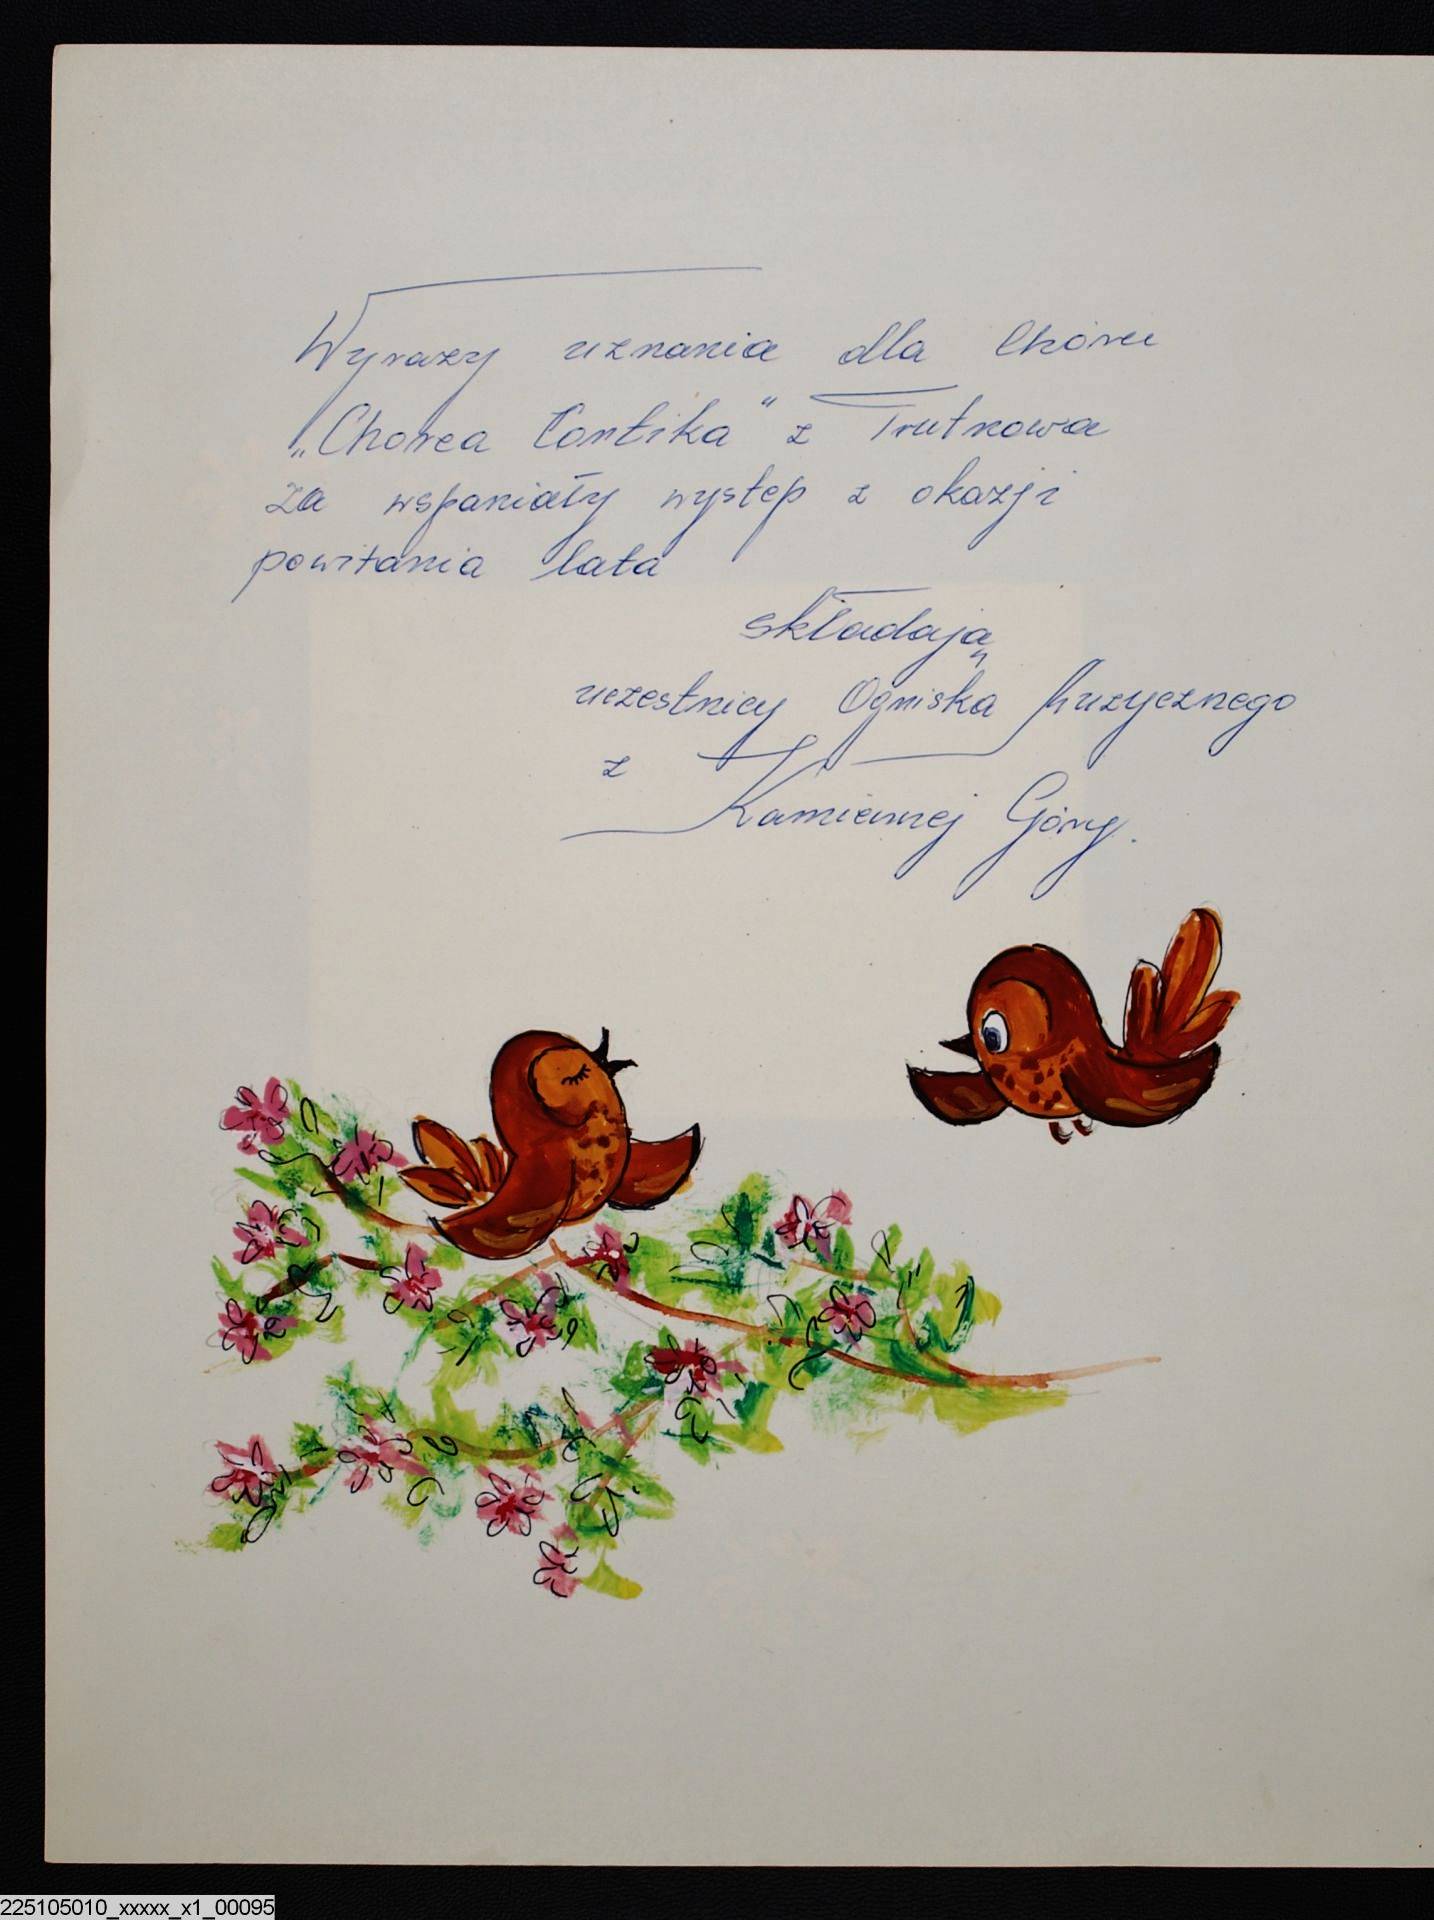 Wyrazy uznania dla Chóru
„Chorea Contika" z Trutnowa
za wspaniały występ z okazji
powitania lata
składają
uczestnicy Ogniska Muzycznego
z
Kamiennej Góry.
225105010_xxxxx_x1_00095